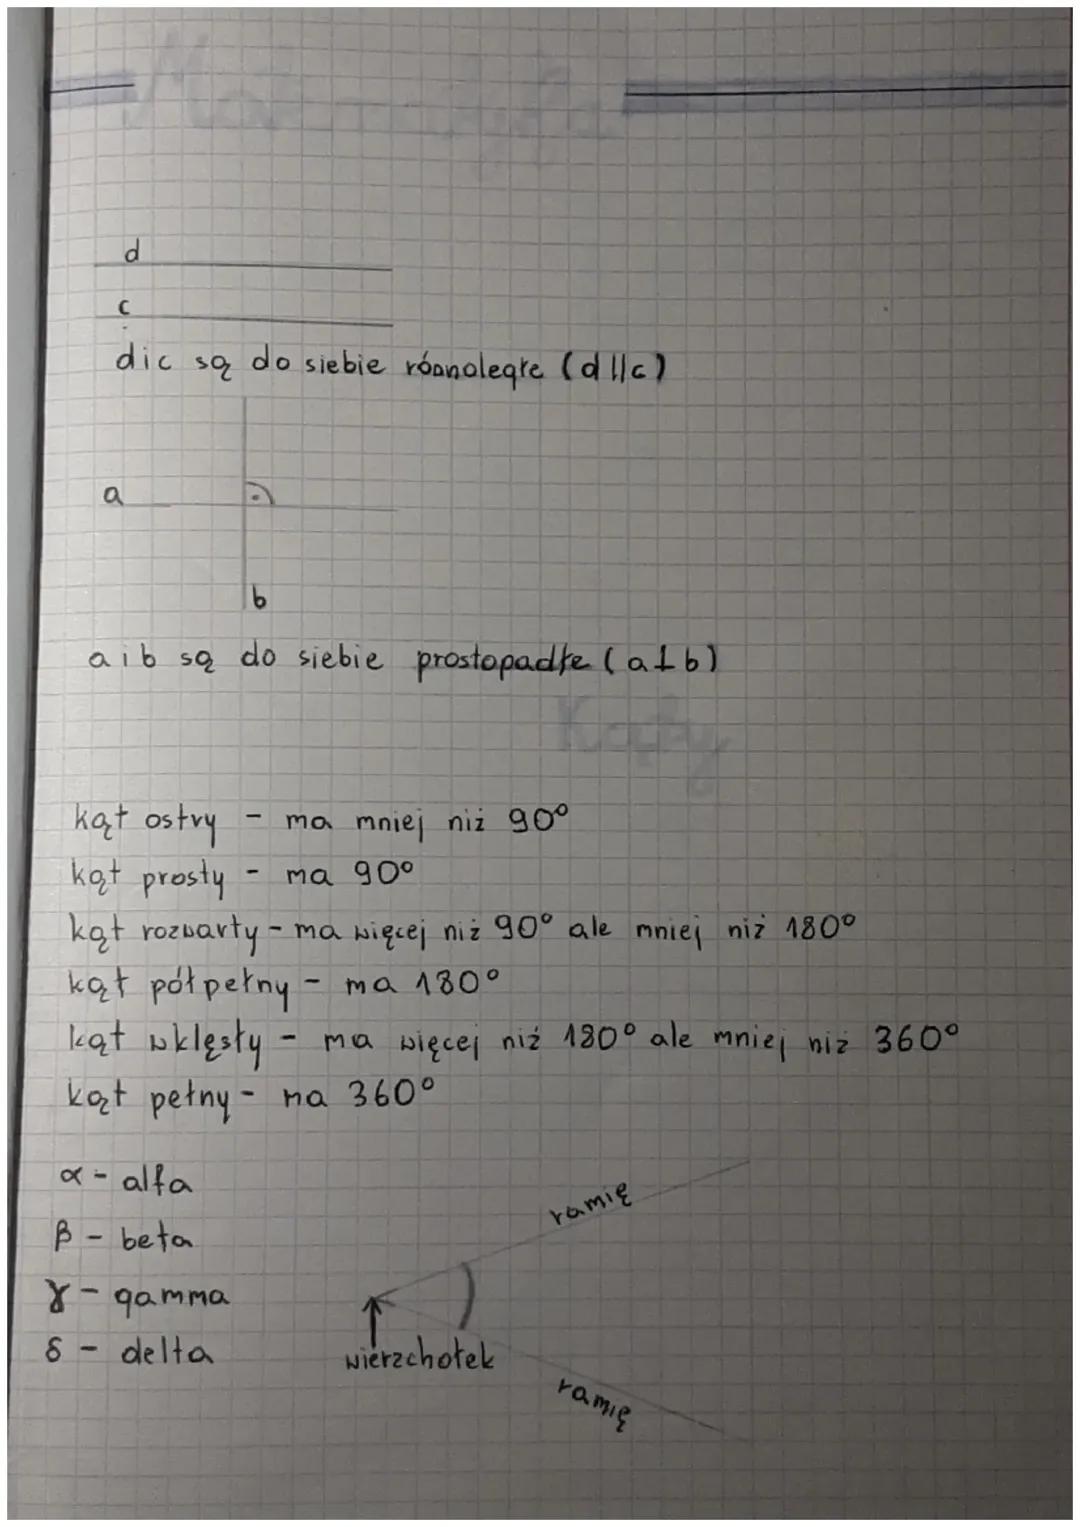 Matematyka
d
c
d i c są do siebie równoległe (d || c)
a
b
a i b są do siebie prostopadłe (a ⊥ b)
Kąty
kąt ostry - ma mniej niż 90°
kąt prosty - ma 90°
kąt rozwarty - ma więcej niż 90° ale mniej niż 180°
kąt półpełny - ma 180°
kąt wklęsły - ma więcej niż 180° ale mniej niż 360°
kąt pełny - ma 360°
α - alfa
β - beta
γ - gamma
δ - delta
ramię
wierzchołek
ramię